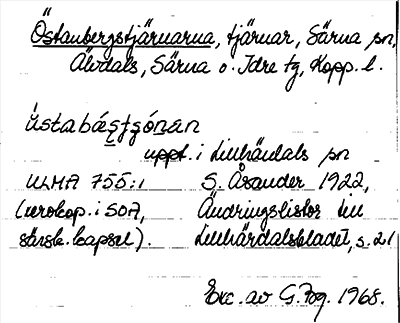 Östanbergstjärnarna, tjärnar, Särna sn,
Älvdals, Särna o. Idre tg, Kopp. l.
üstabásţşónan
uppt. i Lillhärdals sn
ULMA 755:1 S. Åsander 1922,
(xerokop. i SOA, Ändringslistor till
särsk. kapsel). Lillhärdalsbladet, s. 21
Exc. av G. Pog. 1968.